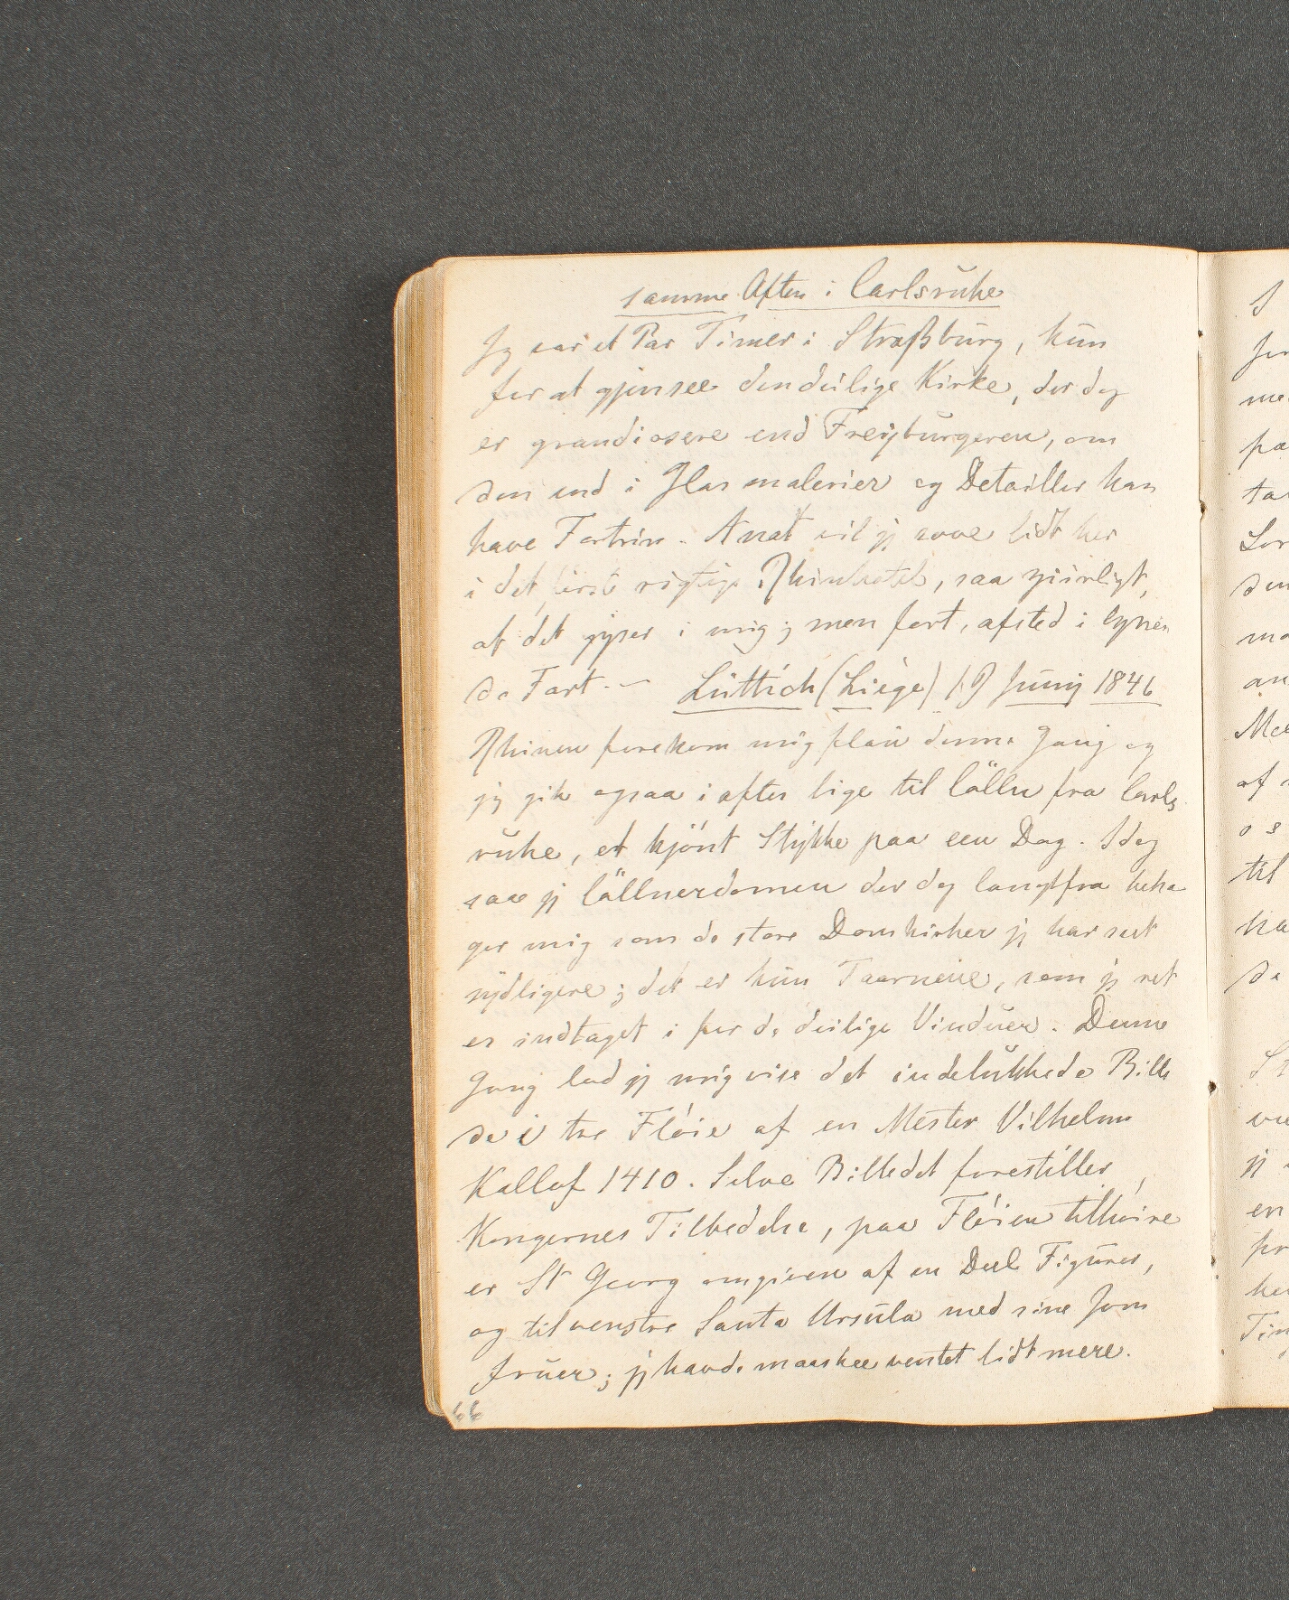 samme Aften i Carlsruhe
Jeg var et Par Timer i Straßburg, kun
for at gjensee den deilige Kirke, der dog
er grandiosere end Freyburgeren, om
den end i Glasmalerier og Detailler kan
have Fortrin. I nat vil jeg sove lidt her
i det første rigtige Rhinhotel, saa ziirligt,
at det gyser i mig; men fort, afsted i lynen
de Fart. — Lüttich (Liège) 19 Juny 1846
Rhinen forekom mig flau denne Gang og
jeg gik ogsaa i aftes lige til Cölln fra Carls
ruhe, et kjönt Stykke paa een Dag. Idag
saae jeg Cöllnerdomen der dog langtfra beha
ger mig som de store Domkirker jeg har seet
sydligere; det er kun Taarnene, som jeg ret
er indtaget i for de deilige Vinduer. Denne
Gang lod jeg mig vise det indelukkede Bille
de i tre Fløie af en Mester Vilhelm
Kallof 1410. Selve Billedet forestiller
Kongernes Tilbedelse, paa Fløien tilhøire
er St Georg omgiven af en Deel Figurer,
og tilvenstre Santa Ursula med sine Jom
fruer; jeg havde maaskee ventet lidt mere.
66